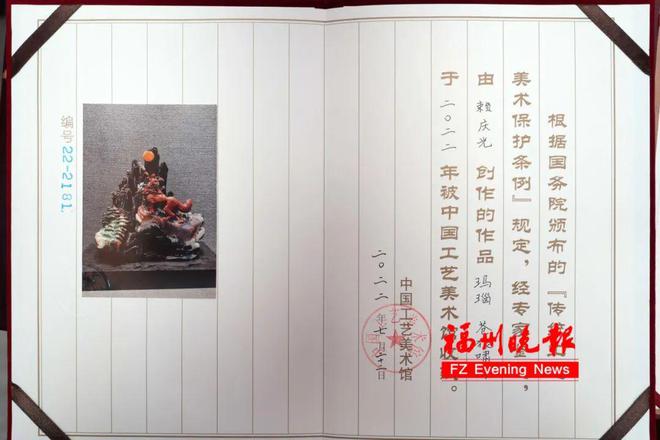 根据国务院颁布的『传统
美术保护条例』规定，经专家鉴，
由 赖庆光 创作的作品 玛瑙 苍
于 二〇二二 年被中国工艺美术馆收。
中国工艺美术馆
二〇二二年七月二十二日
编号 22-2181
福州晚报
FZ Evening News